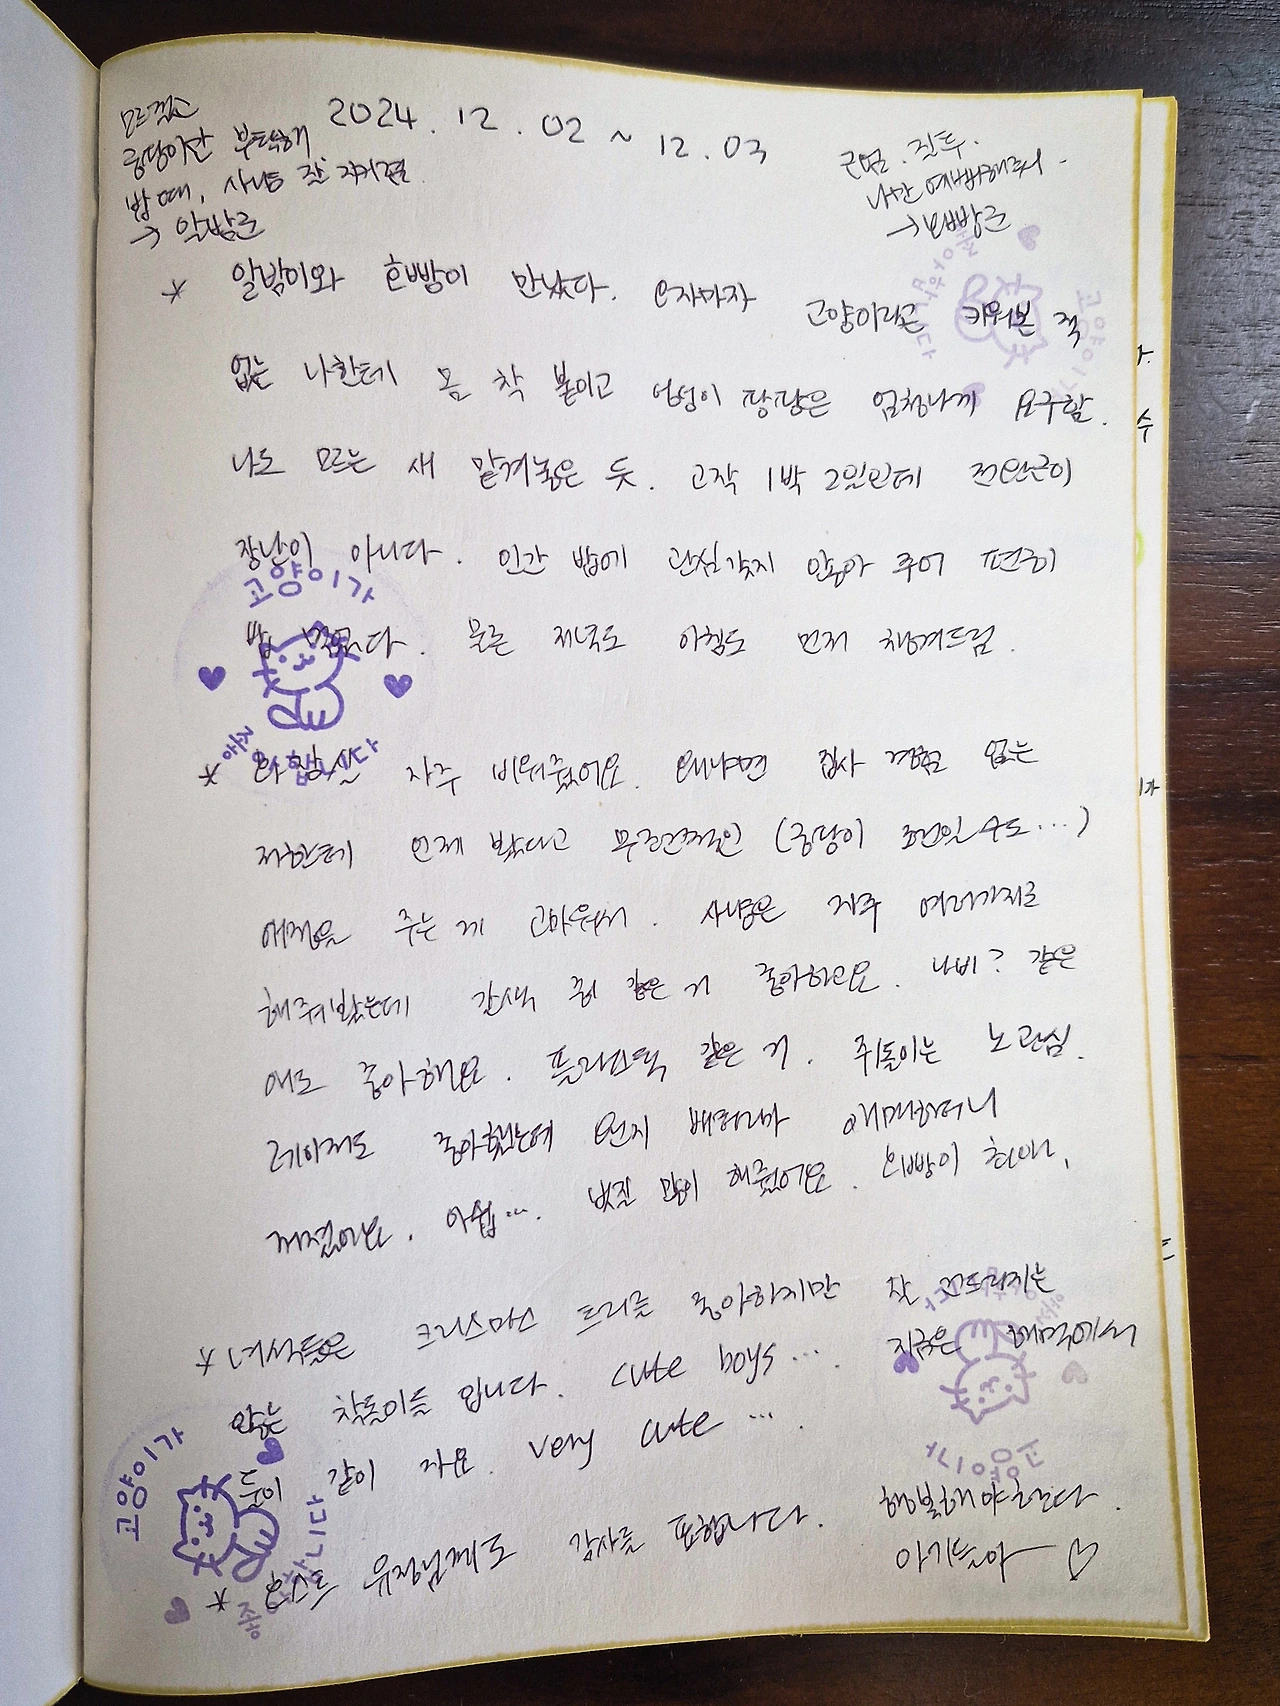 모르겠고
궁당이만 부탁해
밥 때, 사냥 잘 지켜줄
→ 알밤군
2024. 12. 02 ~ 12. 03
근엄. 질투.
나만 예뻐해줘
* 알밤이와 호빵이 만났다. 오자마자 고양이라곤 키워본 적
없는 나한테 몸 착 붙이고 엉덩이 팡팡은 엄청나게 요구함.
나도 모르는 새 맡겨놓은 듯. 고작 1박 2일인데 전완근이
장난이 아니다. 인간 밥에 관심갖지 않아 주어 편히
밥 먹었다. 물론 저녁도 아침도 먼저 챙겨드림.
* 화장실 자주 비워줬어요. 왜냐면 집사 경험 없는
저한테 언제 봤다고 무조건적인 (궁당이 일수도...)
애정을 주는 게 고마워서. 사냥은 자주 여러가지로
해줘봤는데 갈색 쥐 같은 거 좋아하고요. 나비? 같은
애도 좋아해요. 플라스틱 같은 거. 쥐돌이는 노관심.
레이저도 좋아했는데 왠지 배터리가 애매하더니
꺼졌어요. 아쉽.... 빗질 많이 해줬어요. 호빵이 최애.
* 녀석들은 크리스마스 트리를 좋아하지만 잘 건드리지는
않는 착돌이들 입니다. cute boys.... 지금은 해먹에서
둘이 같이 자요. very cute ....
* 호스트 유정님께도 감사를 표합니다. 행복해야한다.
아기들아 ♡
고양이가
고양이가
고양이가
고양이가